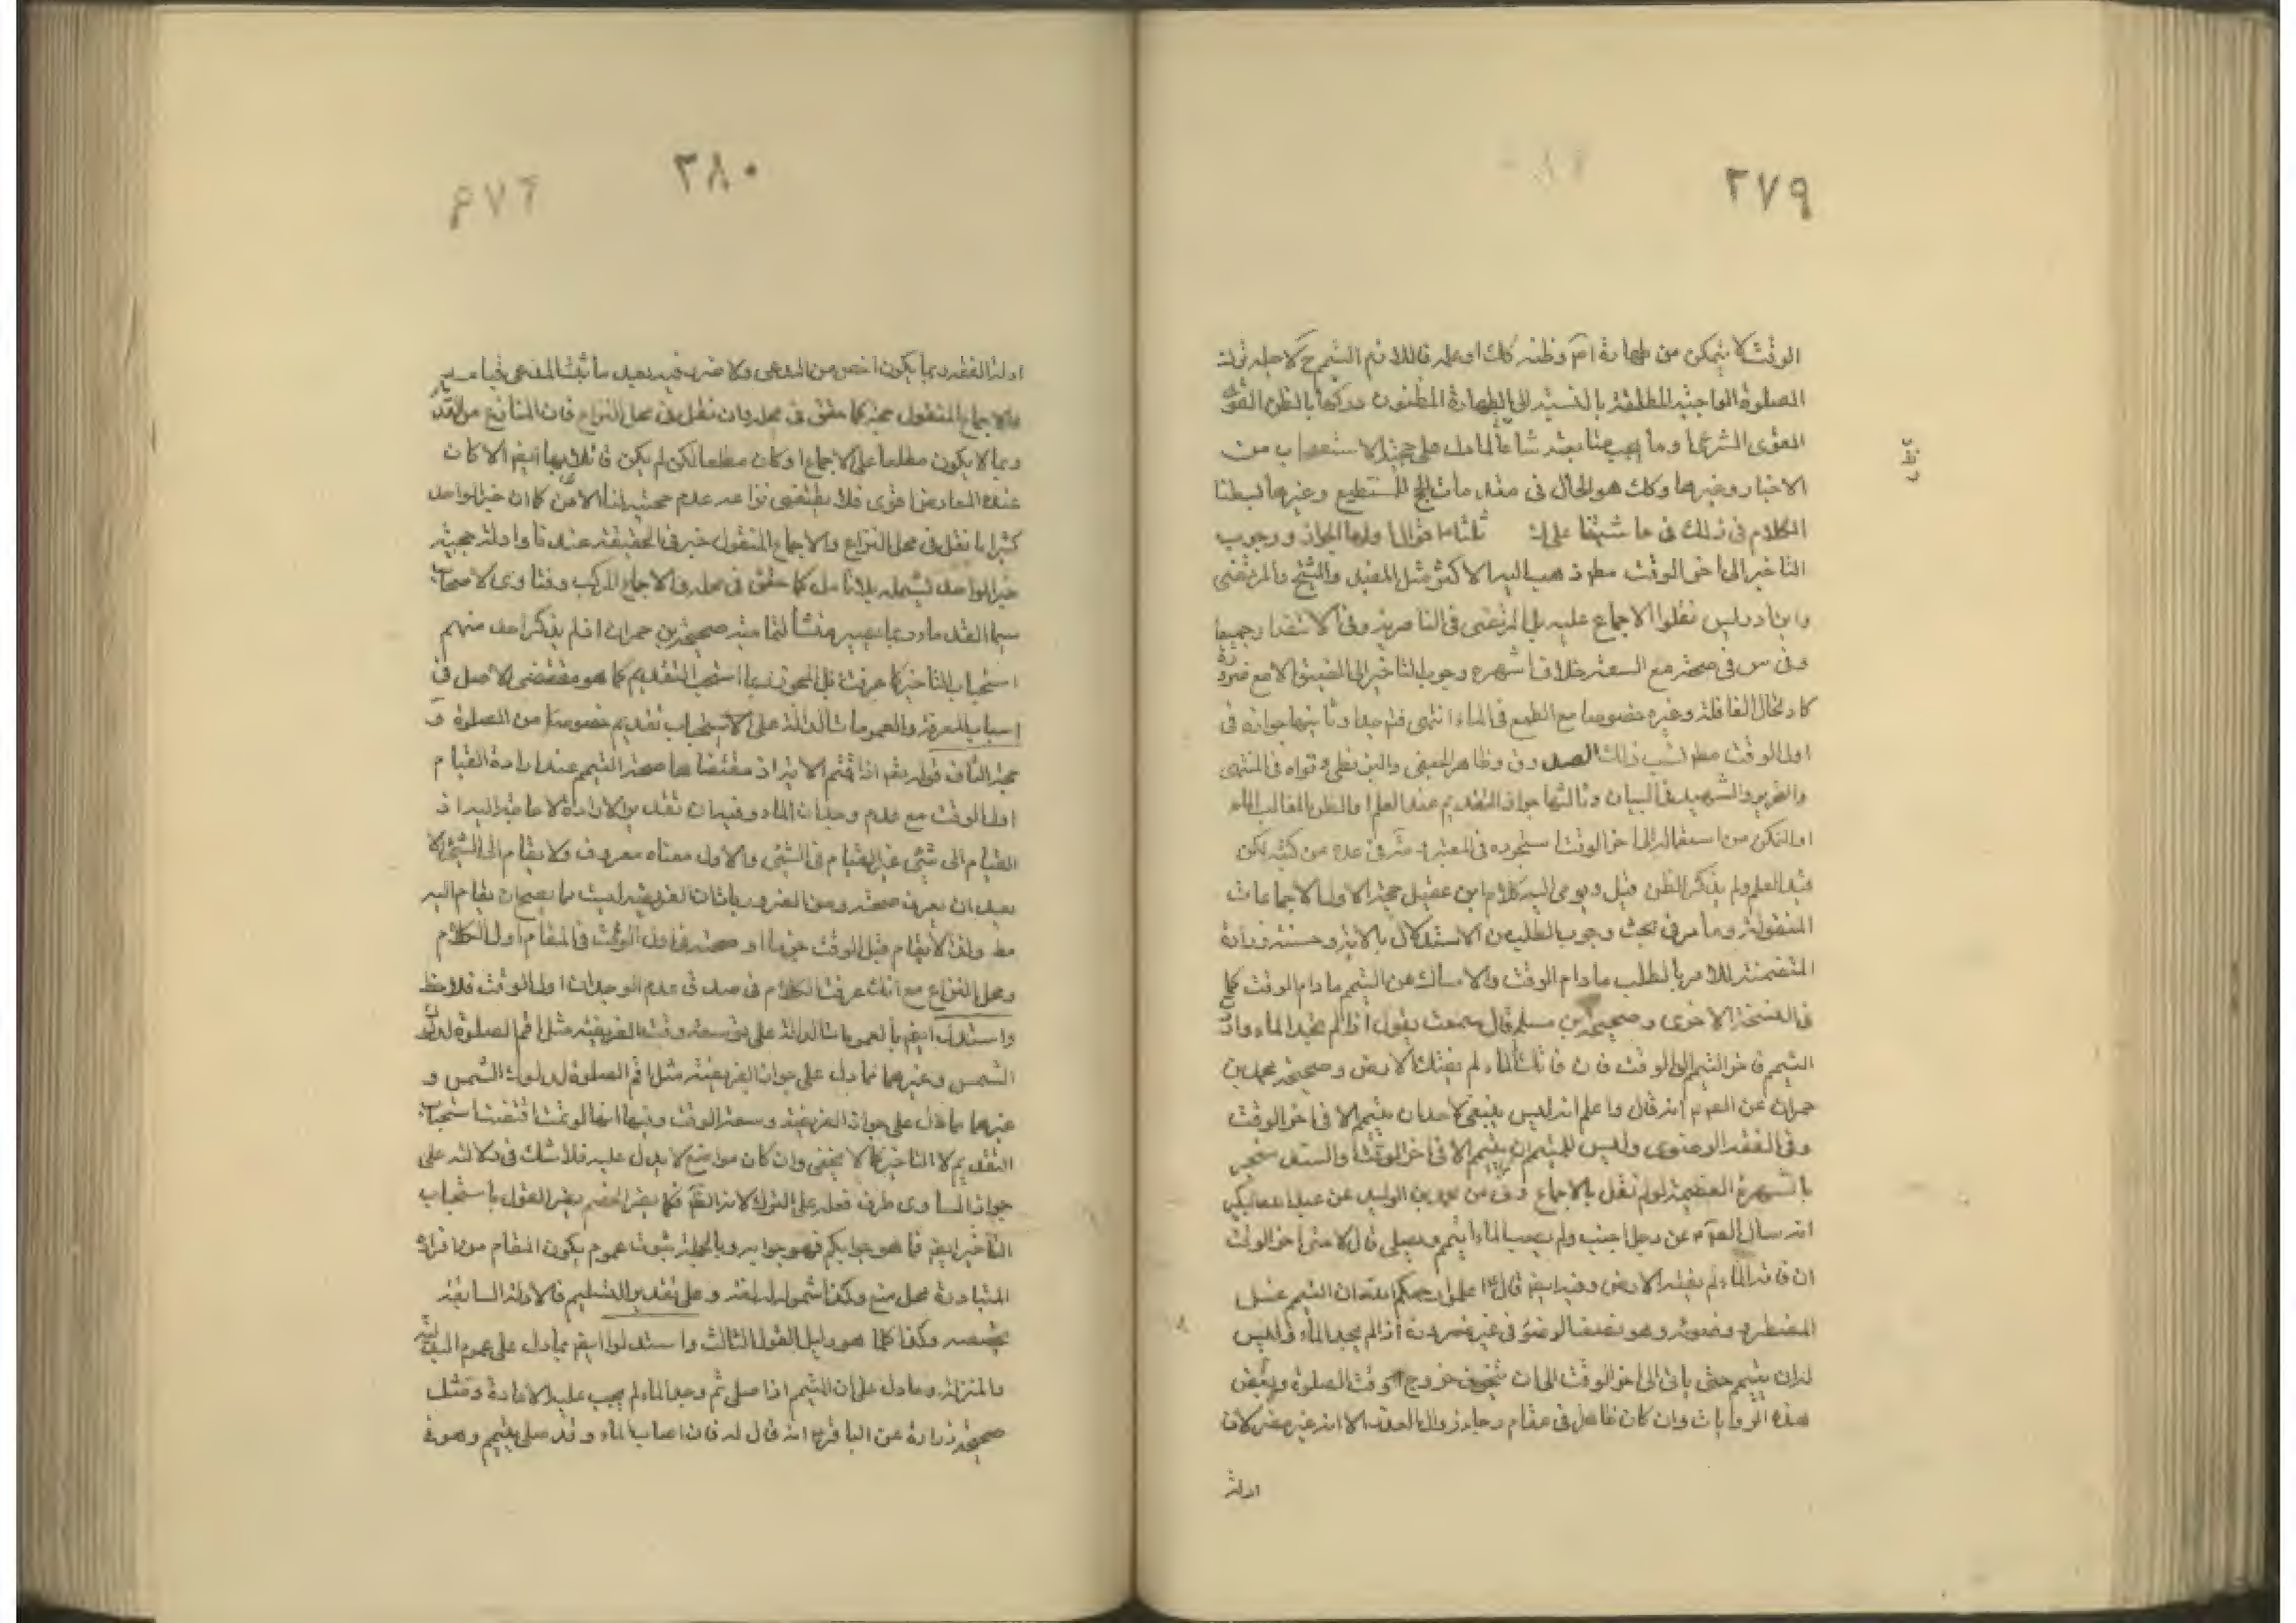 ٣٧٩
الوقت لا يتمكن من طهارة وظنه كك او علمه فاللازم التيمم ح لاجله
الصلوة الواجبة المطلقة بالنسبة الى الطهارة المظنون دركها بالظن القوى
القوى الشرعى وما يجب متابعته شرعا لما دل على حجية الاستصحاب من
الاخبار وغيرها وكك هو الحال فى مقدمات الحج للمستطيع وغيرها بسطنا
الكلام فى ذلك فى حاشيتنا على ك ثلثا ما قوال اولها الجواز ووجوب
التاخير الى اخر الوقت مط ذهب اليه الاكثر مثل المفيد والشيخ والمرتضى
وابن ادريس نقلوا الاجماع عليه بل المرتضى فى الناصرية وفى الانتصار جميعا
وفى س فى صحته مع السعة خلاف اشهره وجوب التاخير الى الضيق الا مع ضرورة
كارتحال القافلة وغيره خصوصا مع الطمع فى الماء انتهى وثانيها جوازه فى
اول الوقت مط نسب ذلك الصدوق وظاهر الجعفى والبزنطى وقواه فى المنتهى
والتحرير والشهيد فى البيان وثالثها جواز التقديم عند العلم او الظن الغالب
او التمكن من استعماله الى اخر الوقت استجوده فى المعتبر فى عدة من كتبه لكن
قيد العلم ولم يذكر الظن قيل ويومى اليه كلام ابن عقيل حجة الاول الاجماعات
المنقولة وما مر فى بحث وجوب الطلب من الاستدلال بالاية وحسنة زرارة
المتضمنة للامر بالطلب ما دام الوقت والامساك عن التيمم ما دام الوقت كما
فى النسخة الاخرى وصحيحة بن مسلم قال سمعت يقول اذا لم تجد الماء واردت
التيمم فاخر التيمم الى الوقت فان فاتك الماء لم يفتك الارض وصحيحة محمد بن
حمران عن انه قال واعلم انه ليس ينبغى لاحد ان يتيمم الا فى اخر الوقت
وفى الفقه الرضوى وليس للمتيمم ان يتيمم الا فى اخر الوقت والسند منجبر
بالشهرة العظيمة لو لم نقل بالاجماع بن الوليد عن عبد الله بن بكير
انه سال عن رجل اجنب ولم يصب الماء ايتيمم ويصلى قال لا حتى اخر الوقت
ان فاته الماء لم يفته الارض وفيه ايضا قال اعلموا رحمكم الله ان التيمم غسل
المضطر ووضوئه وهو نصف الوضوء فى غير ضرورة اذا لم يجد الماء وليس
له ان يتيمم حتى ياتى الى اخر الوقت الى ان يتخوف خروج وقت الصلوة وبعض
هذه الروايات وان كان ظاهرا فى مقام رجاء زوال العذر الا انه غير مضر لان
الادلة
٣٨٠
ادلة الفقه ربما يكون اخص من المدعى ولا ضرر فيه بعد ما ثبت المدعى
والاجماع المنقول حجة كما حقق فى محله وان نقل فى محل النزاع فان المنازع من القدماء
ربما لا يكون مطلعا على الاجماع او كان مطلعا لكن لم يكن
عنده المعارض اقوى فلا يقتضى نزاعه عدم حجيته لنا الان كما ان خبر الواحد
كثيرا ما نقل فى محل النزاع والاجماع المنقول خبر فى الحقيقة عندنا وادلة حجية
خبر الواحد تشمله بلا تامل كما حقق فى محله والاجماع المركب وفتاوى الاصحاب
سيما القدماء وربما يصير منشأ صحيحة بن حمران اذ لم يذكر احد منهم
استحباب التاخير كما عرفت بل المجوز ربما استحب التقديم كما هو مقتضى الاصل فى
اسباب المعرفة والعمومات الدالة على الاستحباب تقديم خصوصا من الصلوة و
حجة الثانى قوله تعالى اذا قمتم الاية اذ مقتضاها صحة التيمم عند ارادة القيام
اول الوقت مع عدم وجدان الماء وفيه ان تقدير الارادة لا حاجة اليه اذ
القيام الى شئ غير القيام فى الشئ والاول معناه معروف ولا يقام الى الشئ الا
بعد ان يعرف صحته ومن الضروريات ان الفريضة ليست مما يصح ان يقام اليه
مط ولذا لا يقام قبل الوقت جزما او صحته فى اول الوقت فى المقام اول الكلام
ومحل النزاع مع انك عرفت الكلام فى صدق عدم الوجدان اول الوقت فلاحظ
واستدل ايضا بالعمومات الدالة على سعة وقت الفريضة مثل اقم الصلوة لدلوك
الشمس وغيرها مما دل على جواز الفريضة مثل اقم الصلوة لدلوك الشمس و
غيرهما مما دل على جواز الفريضة وسعة الوقت وفيها اقتضت استحباب
التقديم لا التاخير كما لا يخفى وان كان مواضع لا يدل عليه فلا شك فى دلالته على
جواز المساوى طرف فعله على الترك لانه فكما يضر الخصم يضر القول باستحباب
التاخير ايضا فما هو جوابكم فهو جوابه وبالجملة ثبوت عموم يكون المقام من افراده
المتبادرة محل منع وكذا شمول وعلى تقدير التسليم فالادلة السابقة
يخصصه وكذا كلما هو دليل القول الثالث واستدلوا ايضا بما دل على عموم البدلية
والمنزلة وما دل على ان المتيمم اذا صلى ثم وجد الماء لم يجب عليه الاعادة ومثل
صحيحة زرارة عن الباقر انه قال له فان اصاب الماء وقد صلى بتيمم وهو فى